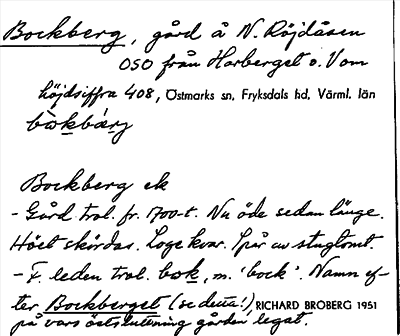 Bockberg, gård å N. Röjdåsen
OSO från Harberget o. V om
höjdsiffra 408, Östmarks sn, Fryksdals hd, Värml. län
Bockberg ek
- Gård trol. fr. 1700-t. Nu öde sedan länge.
Höet skördas. Loge kvar. Spår av stugtomt.
- F. leden trol. bok, m. 'bock'. Namn ef-
ter Bockberget (se detta!), RICHARD BROBERG 1951
på vars östsluttning gården legat.